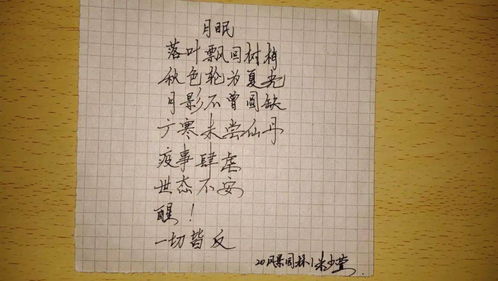 月眠
落叶飘回树梢
秋色轮为夏光
月影不曾圆缺
广寒未尝仙丹
疫事肆虐
世态不安
醒！
一切皆反
20风景园林1